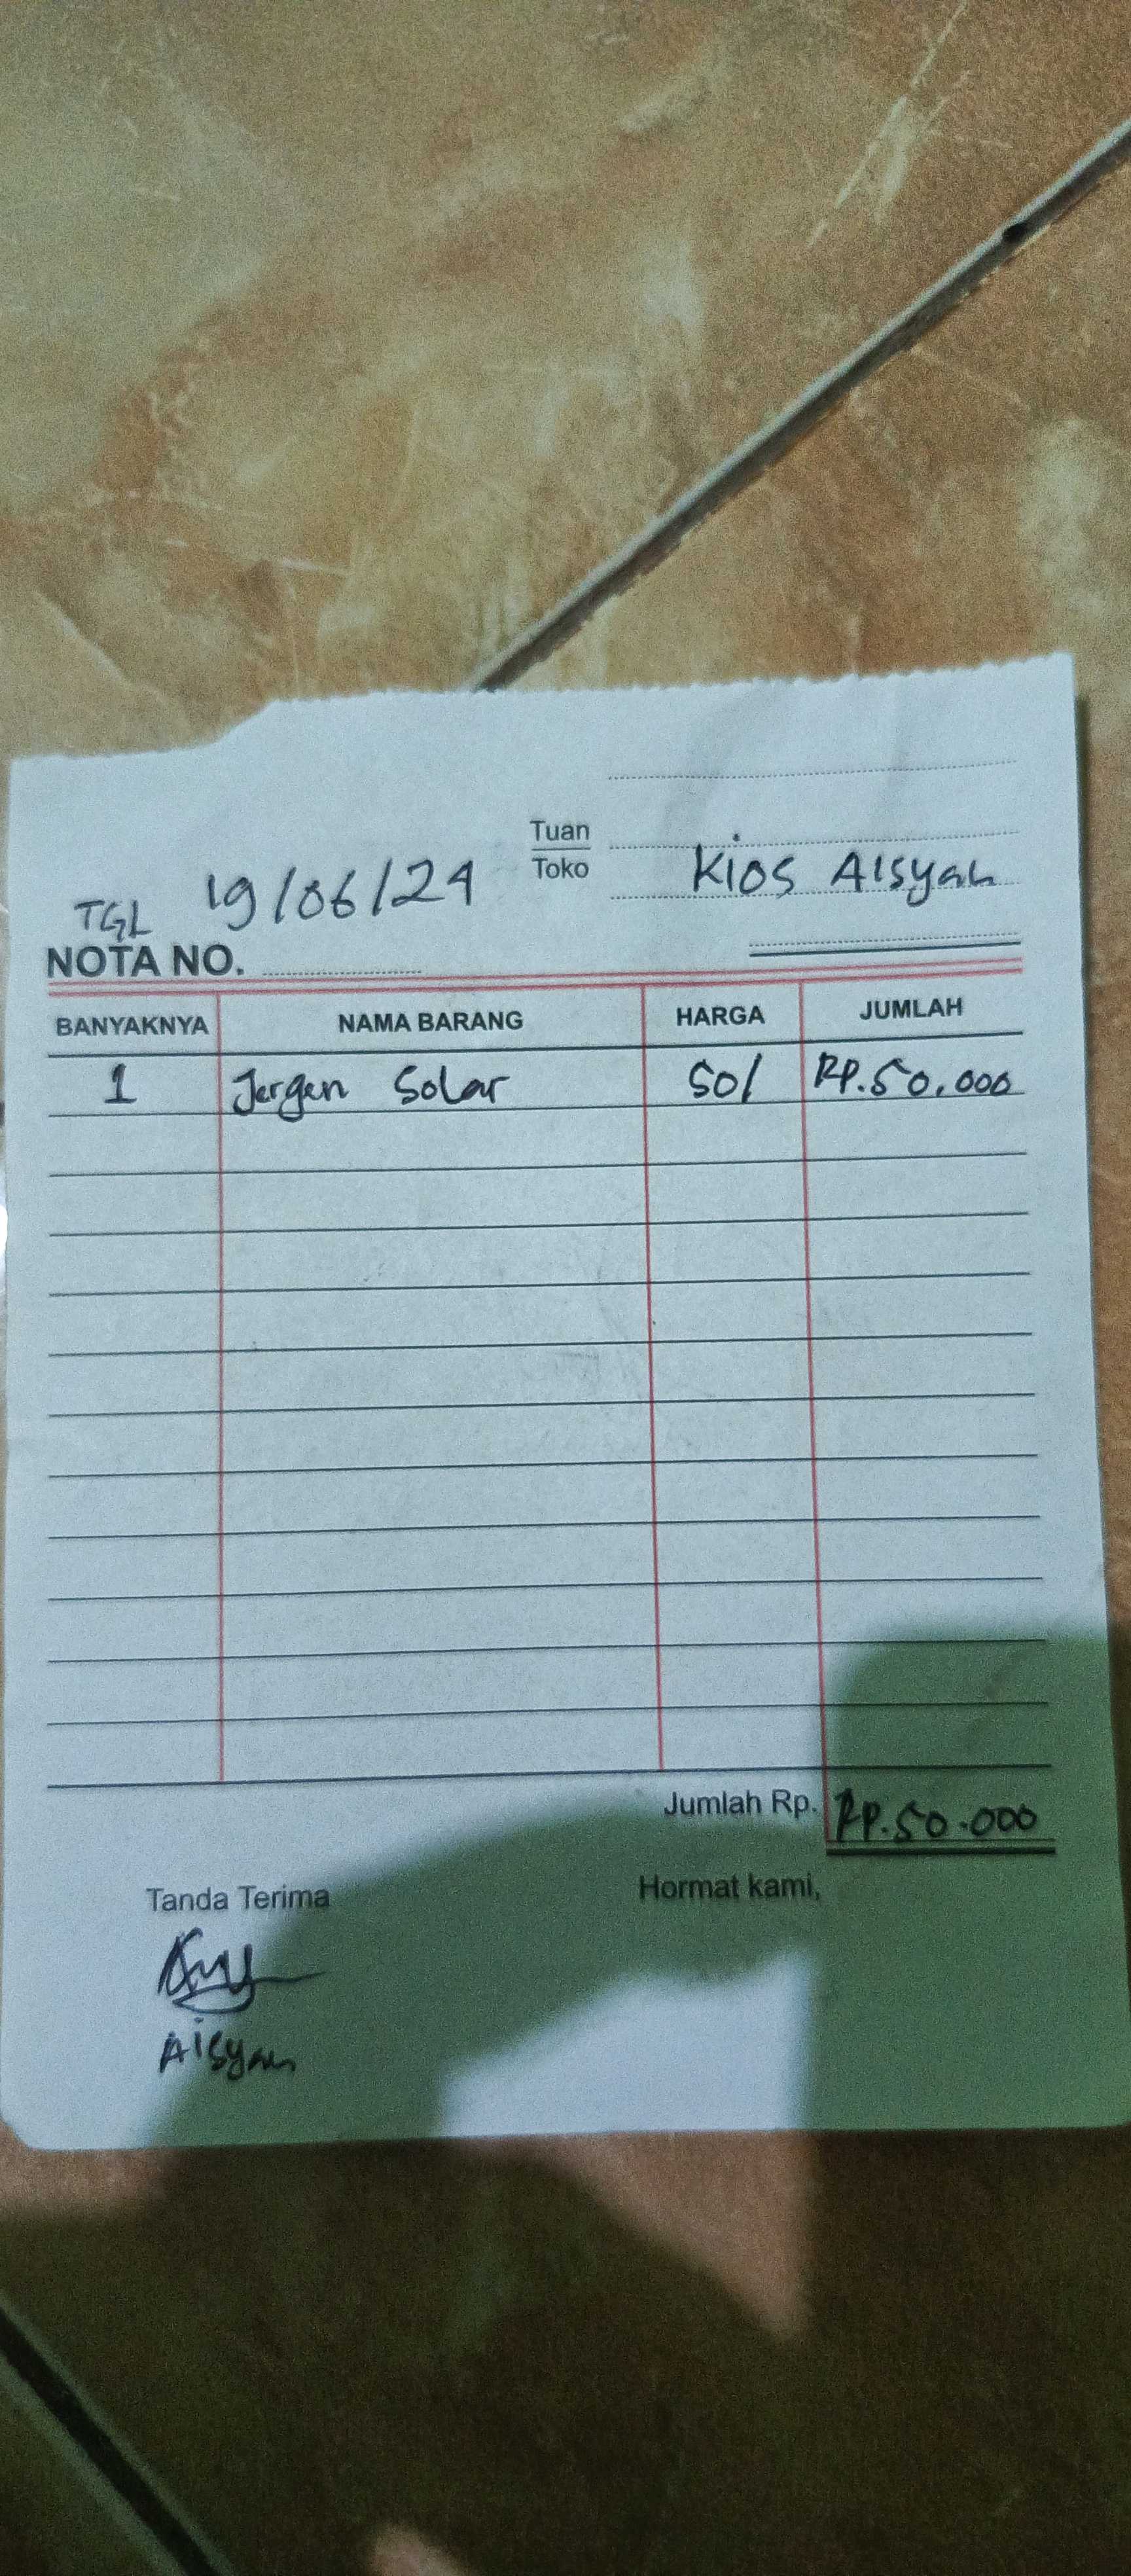 Tuan
Toko Kios Aisyah
TGL 19/06/24
NOTA NO.
BANYAKNYA NAMA BARANG HARGA JUMLAH
1 Jergen Solar 50/ RP.50.000
Jumlah Rp. RP.50.000
Tanda Terima Hormat kami,
Aisyah